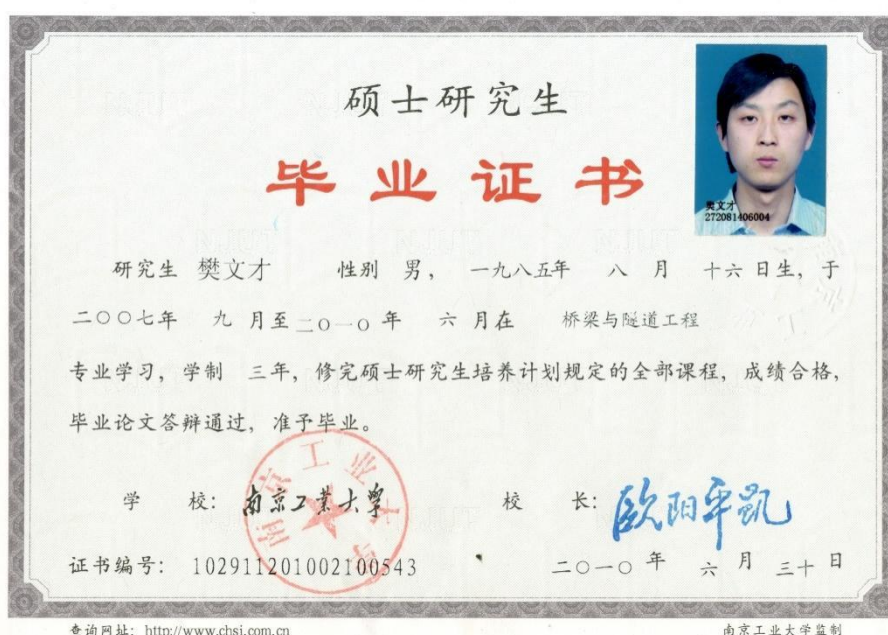 硕士研究生
毕业证书
樊文才
272081406004
研究生 樊文才 性别 男， 一九八五年 八 月 十六 日生，于
二〇〇七年 九 月至 二〇一〇 年 六 月在 桥梁与隧道工程
专业学习，学制 三年，修完硕士研究生培养计划规定的全部课程，成绩合格，
毕业论文答辩通过，准予毕业。
南京工业大学
学 校：南京工业大学 校 长：欧阳平凯
证书编号：102911201002100543 二〇一〇 年 六 月 三十 日
查询网址：http://www.chsi.com.cn 南京工业大学监制